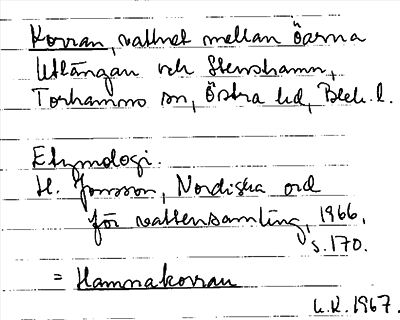 Korran, vattnet mellan öarna
Utlängan och Stenshamn,
Torhamns sn, Östra hd, Blek. l.
Etymologi.
H. Jonsson, Nordiska ord
för vattensamling, 1966,
s. 170.
= Hamnakorran
U.K. 1967.